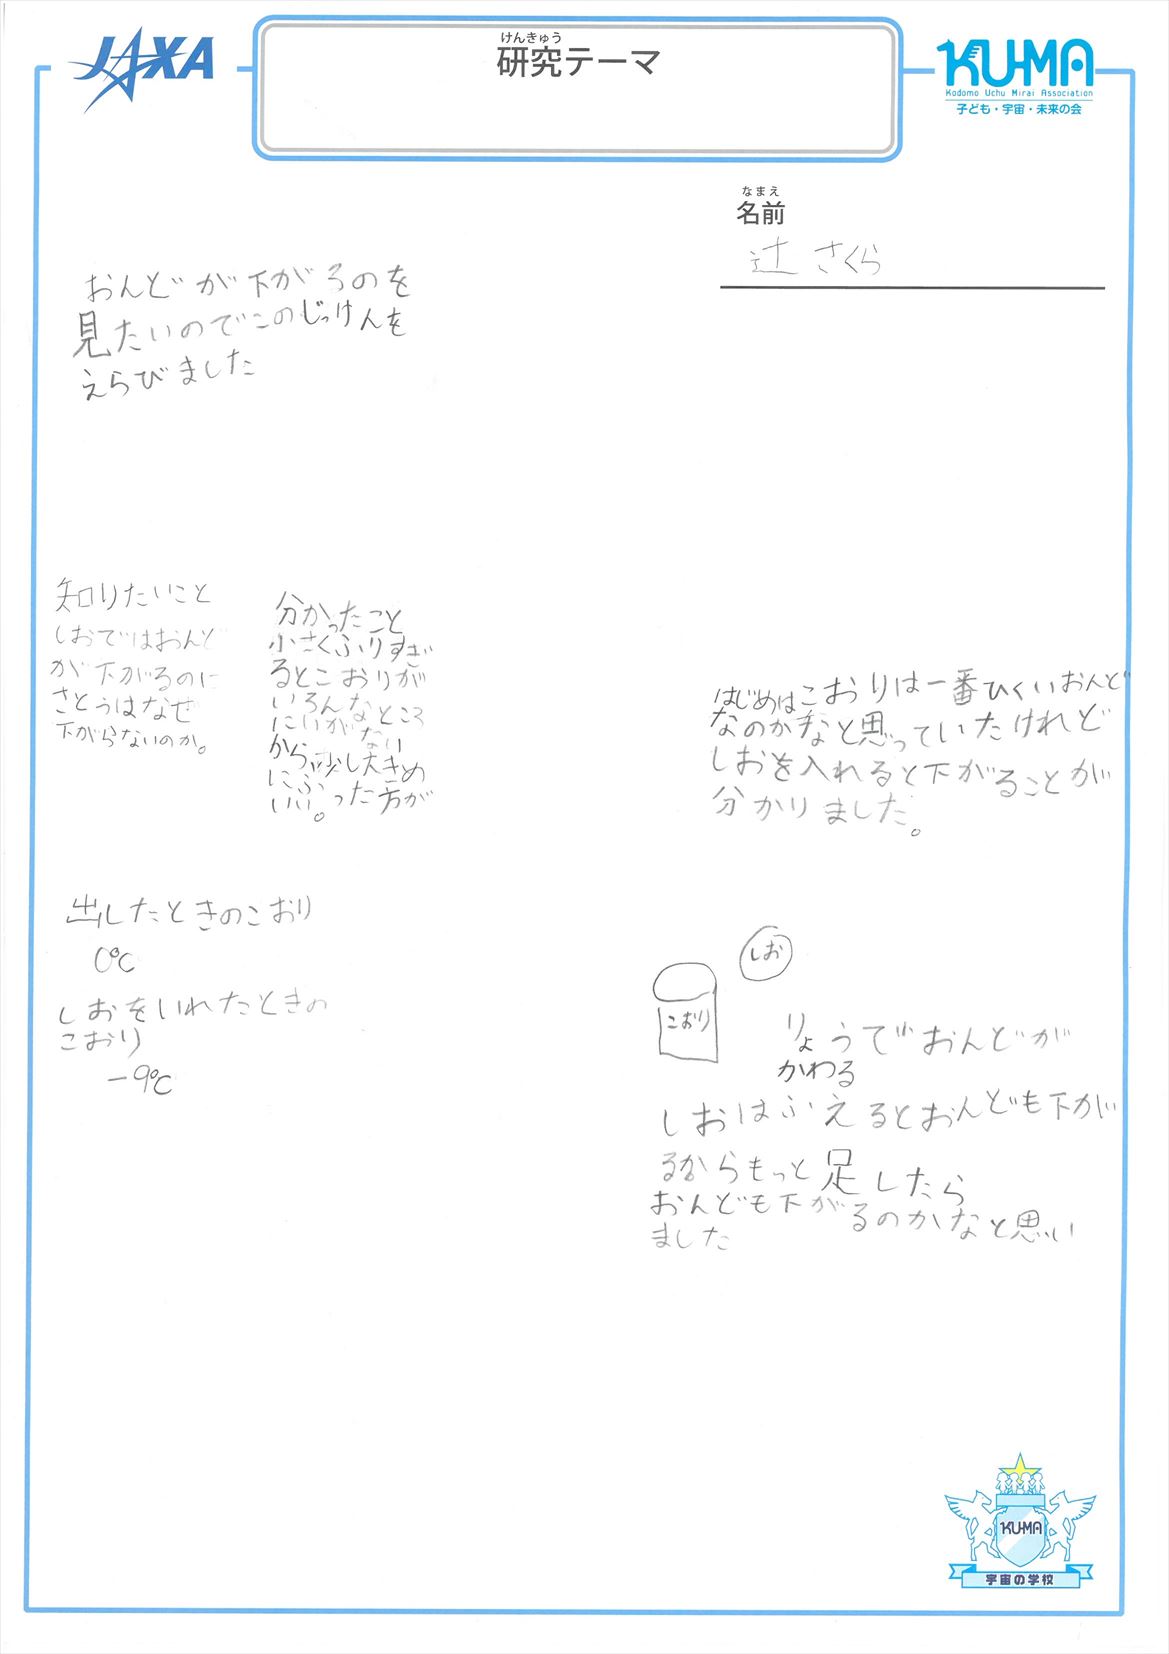 JAXA
けんきゅう
研究テーマ
KU-MA
Kodomo Uchu Mirai Association
子ども・宇宙・未来の会
なまえ
名前
辻 さくら
おんどが下がろのを
見たいのでこのじっけんを
えらびました
知りたいこと
しおではおんど
が下がるのに
さとうはなぜ
下がらないのか。
分かったこと
小さくふりすぎ
るとこおりが
いろんなところ
にいがない
から少し大きめ
にふった方が
いい。
はじめはこおりは一番ひくいおんど
なのかなと思っていたけれど
しおを入れると下がることが
分かりました。
出したときのこおり
0℃
しおをいれたときの
こおり
-9℃
しお
こおり
りょうでおんどが
かわる
しおはふえるとおんども下が
るからもっと足したら
おんども下がるのかなと思い
ました
KU-MA
宇宙の学校